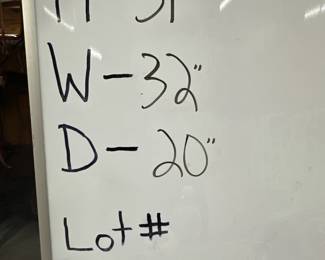 W - 32"
D - 20"
Lot #